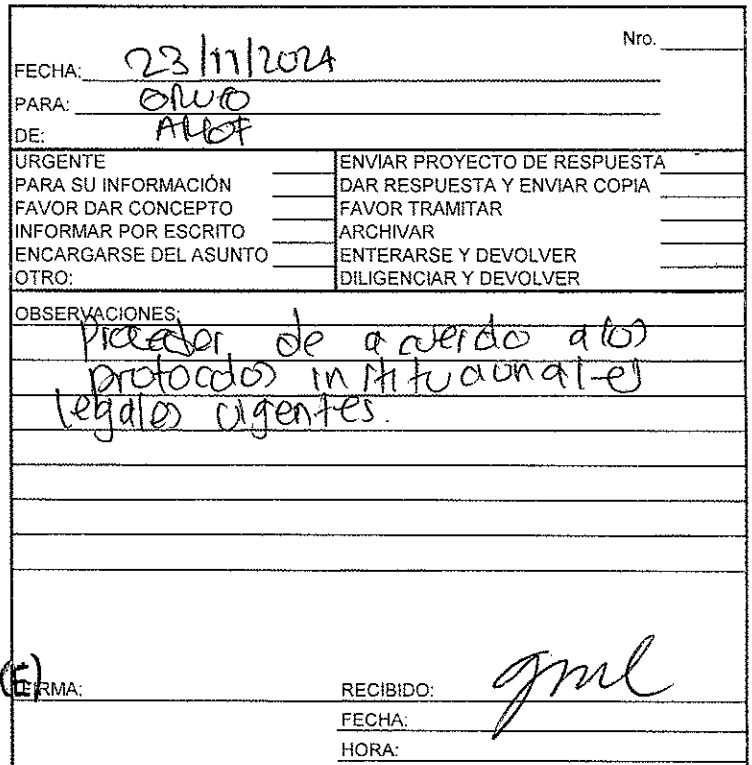 Nro.
FECHA: 23/11/2024
PARA: GRUPO
DE:
URGENTE
PARA SU INFORMACIÓN
FAVOR DAR CONCEPTO
INFORMAR POR ESCRITO
ENCARGARSE DEL ASUNTO
OTRO:
ENVIAR PROYECTO DE RESPUESTA
DAR RESPUESTA Y ENVIAR COPIA
FAVOR TRAMITAR
ARCHIVAR
ENTERARSE Y DEVOLVER
DILIGENCIAR Y DEVOLVER
OBSERVACIONES:
Proceder de acuerdo a los
protocolos institucionales
legales vigentes.
(E)
FIRMA:
RECIBIDO:
FECHA:
HORA: